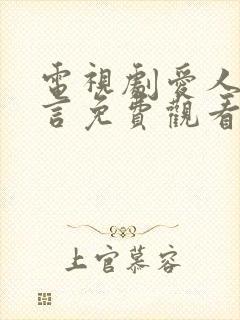 電視劇愛人
言免費觀看
上官慕容